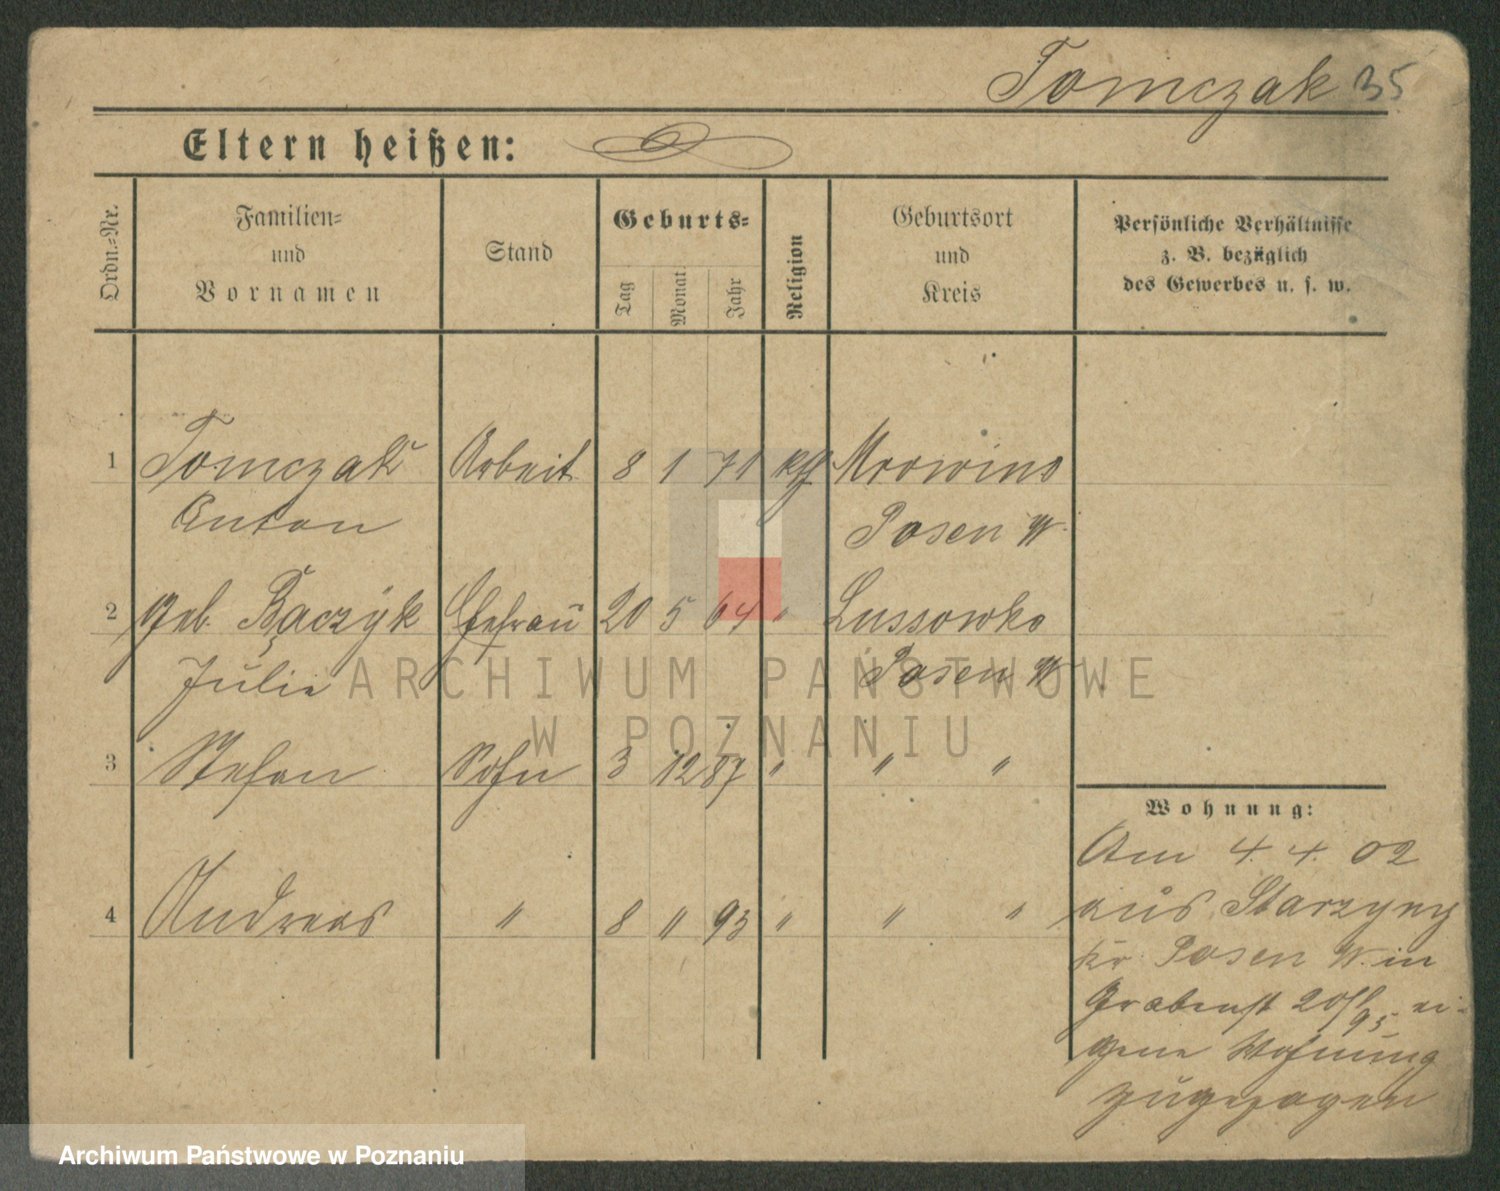 Tomczak 35
Eltern heißen:
Ordn.-Nr.
Familien-
und
Vornamen
Stand
Geburts-
Tag
Monat
Jahr
Religion
Geburtsort
und
Kreis
Persönliche Verhältnisse
z. B. bezüglich
des Gewerbes u. s. w.
1 Tomczak Arbeit 8 1 71 kth Mrowino
Anton Posen W
2 geb. Bączyk Ehefrau 20 5 64 " Lussowko
Julie Posen W
3 Stefan Sohn 3 12 87 " " "
4 Andreas " 8 " 93 " " "
Wohnung:
Am 4. 4. 02
aus Starzyny
Kr Posen W. in
Grabenst 20 ei-
gene Wohnung
zugezogen
ARCHIWUM PAŃSTWOWE
W POZNANIU
Archiwum Państwowe w Poznaniu